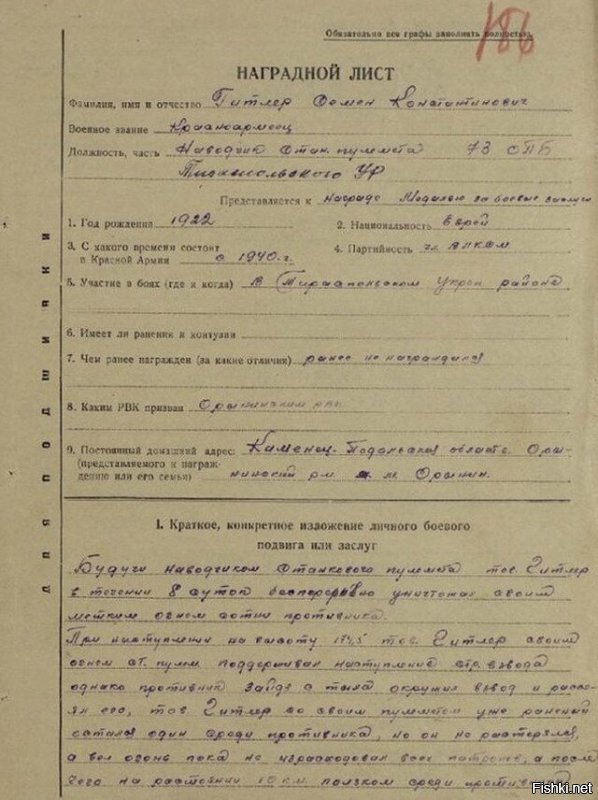 Обязательно все графы заполнять полностью.
186
НАГРАДНОЙ ЛИСТ
Фамилия, имя и отчество Гитлер Семен Константинович
Военное звание Красноармеец
Должность, часть Наводчик стан. пулемета 73 ОПБ
Тираспольского УР
Представляется к награде Медалью за боевые заслуги
1. Год рождения 1922 2. Национальность еврей
3. С какого времени состоит
в Красной Армии с 1940 г. 4. Партийность чл. ВЛКСМ
5. Участие в боях (где и когда) В Тираспольском укреп районе
6. Имеет ли ранения и контузии
7. Чем ранее награжден (за какие отличия) ранее не награждался
8. Каким РВК призван Орынинским рвк
9. Постоянный домашний адрес: Каменец-Подольская область Оры-
(представляемого к награж-
дению или его семьи) нинский р-н м. Орынин.
для подшивки
I. Краткое, конкретное изложение личного боевого
подвига или заслуг
Будучи наводчиком станкового пулемета тов. Гитлер
в течении 8 суток беспрерывно уничтожал своим
метким огнем сотни противника.
При наступлении на высоту 174,5 тов. Гитлер своим
огнем ст. пулем. поддерживал наступление стр. взвода
однако противник зайдя с тыла окружил взвод и рассе-
ял его, тов. Гитлер со своим пулеметом уже раненый
остался один среди противника, но он не растерялся,
а вел огонь пока не израсходовал всех патронов, а после
чего на расстоянии 10 км. ползком среди противника
Fishki.net